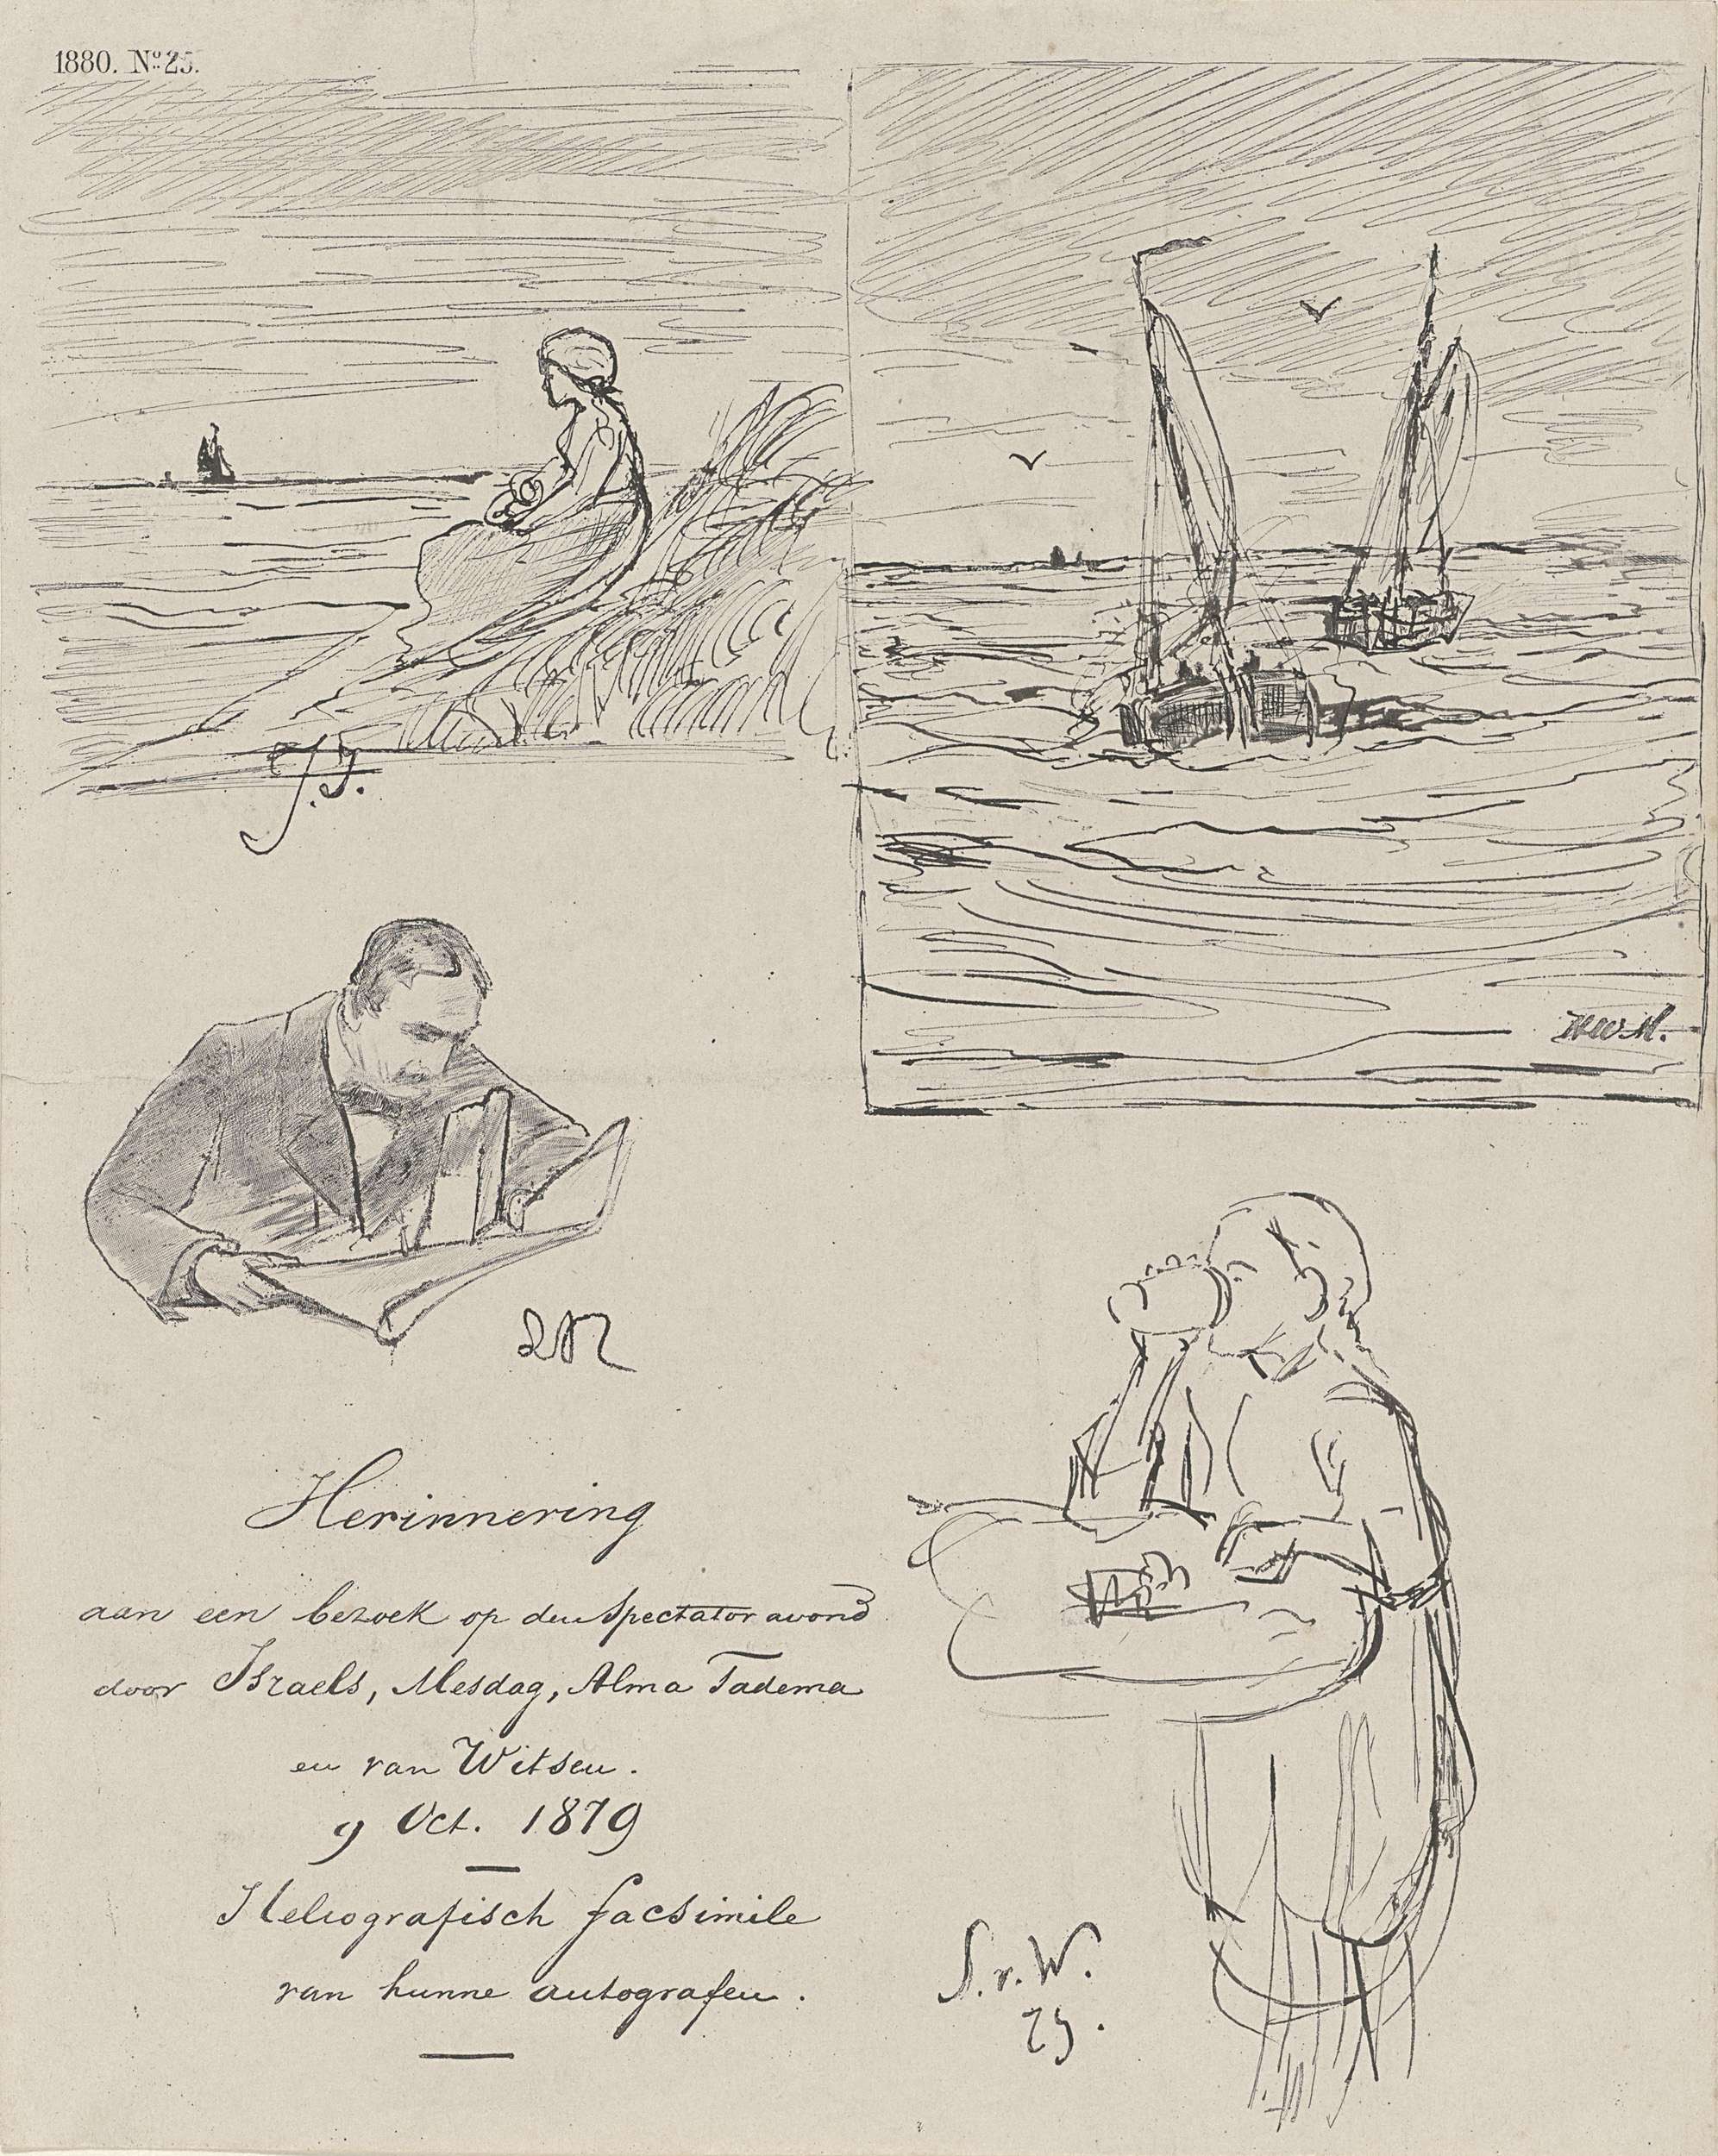 1880. No. 25.
J. I.
H.W.M.
Herinnering
aan een bezoek op den Spectator avond
door Israels, Mesdag, Alma Tadema
en van Witsen.
9 Oct. 1879
Heliografisch facsimile
van hunne autografen.
S. v. W.
79.